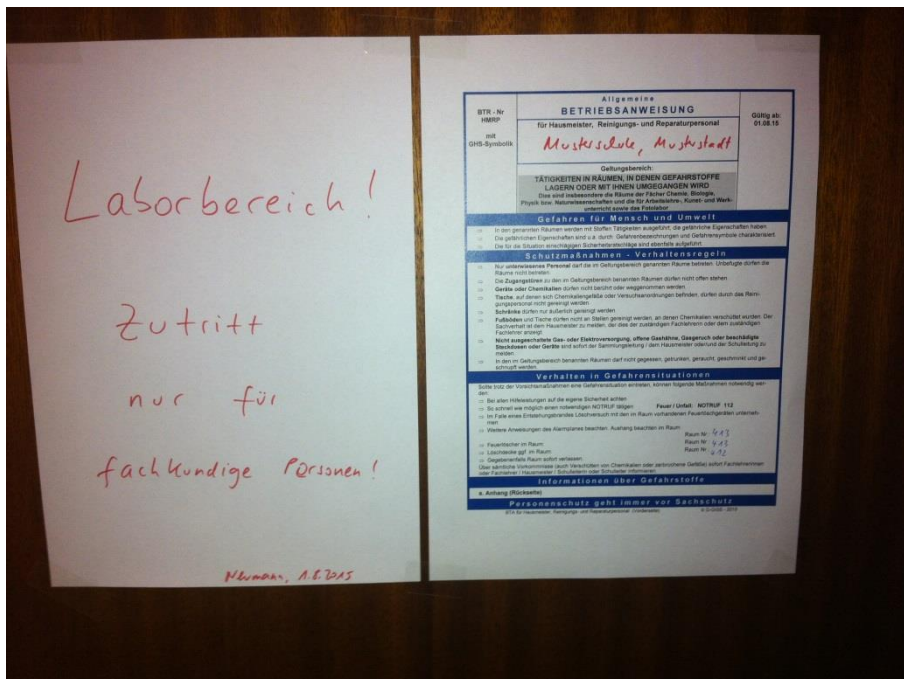 Laborbereich!
Zutritt
nur für
fachkundige Personen!
Neumann, 1.8.2015
BTR - Nr
HMRP
mit
GHS-Symbolik
Allgemeine
BETRIEBSANWEISUNG
für Hausmeister, Reinigungs- und Reparaturpersonal
Musterschule, Musterstadt
Gültig ab:
01.08.15
Geltungsbereich:
TÄTIGKEITEN IN RÄUMEN, IN DENEN GEFAHRSTOFFE
LAGERN ODER MIT IHNEN UMGEGANGEN WIRD
Dies sind insbesondere die Räume der Fächer Chemie, Biologie,
Physik bzw. Naturwissenschaften und die für Arbeitslehre-, Kunst- und Werk-
unterricht sowie das Fotolabor
Gefahren für Mensch und Umwelt
⇒ In den genannten Räumen werden mit Stoffen Tätigkeiten ausgeführt, die gefährliche Eigenschaften haben.
⇒ Die gefährlichen Eigenschaften sind u.a. durch Gefahrenbezeichnungen und Gefahrensymbole charakterisiert.
⇒ Die für die Situation einschlägigen Sicherheitsratschläge sind ebenfalls aufgeführt.
Schutzmaßnahmen - Verhaltensregeln
⇒ Nur unterwiesenes Personal darf die im Geltungsbereich genannten Räume betreten. Unbefugte dürfen die
Räume nicht betreten.
⇒ Die Zugangstüren zu den im Geltungsbereich benannten Räumen dürfen nicht offen stehen.
⇒ Geräte oder Chemikalien dürfen nicht berührt oder weggenommen werden.
⇒ Tische, auf denen sich Chemikaliengefäße oder Versuchsanordnungen befinden, dürfen durch das Reini-
gungspersonal nicht gereinigt werden.
⇒ Schränke dürfen nur äußerlich gereinigt werden.
⇒ Fußböden und Tische dürfen nicht an Stellen gereinigt werden, an denen Chemikalien verschüttet wurden. Der
Sachverhalt ist dem Hausmeister zu melden, der dies der zuständigen Fachlehrerin oder dem zuständigen
Fachlehrer anzeigt.
⇒ Nicht ausgeschaltete Gas- oder Elektroversorgung, offene Gashähne, Gasgeruch oder beschädigte
Steckdosen oder Geräte sind sofort der Sammlungsleitung / dem Hausmeister oder/und der Schulleitung zu
melden.
⇒ In den im Geltungsbereich benannten Räumen darf nicht gegessen, getrunken, geraucht, geschminkt und ge-
schnupft werden.
Verhalten in Gefahrensituationen
Sollte trotz der Vorsichtsmaßnahmen eine Gefahrensituation eintreten, können folgende Maßnahmen notwendig wer-
den:
⇒ Bei allen Hilfeleistungen auf die eigene Sicherheit achten
⇒ So schnell wie möglich einen notwendigen NOTRUF tätigen: Feuer / Unfall: NOTRUF 112
⇒ Im Falle eines Entstehungsbrandes Löschversuch mit den im Raum vorhandenen Feuerlöschgeräten unterneh-
men
⇒ Weitere Anweisungen des Alarmplanes beachten. Aushang beachten im Raum:
Raum Nr. 413
⇒ Feuerlöscher im Raum: Raum Nr. 413
⇒ Löschdecke ggf. im Raum: Raum Nr.
⇒ Gegebenenfalls Raum sofort verlassen.
Über sämtliche Vorkommnisse (auch Verschütten von Chemikalien oder zerbrochene Gefäße) sofort Fachlehrerinnen
oder Fachlehrer / Hausmeister / Schulleiterin oder Schulleiter informieren
Informationen über Gefahrstoffe
s. Anhang (Rückseite)
Personenschutz geht immer vor Sachschutz
BTA für Hausmeister, Reinigungs- und Reparaturpersonal (Vorderseite)